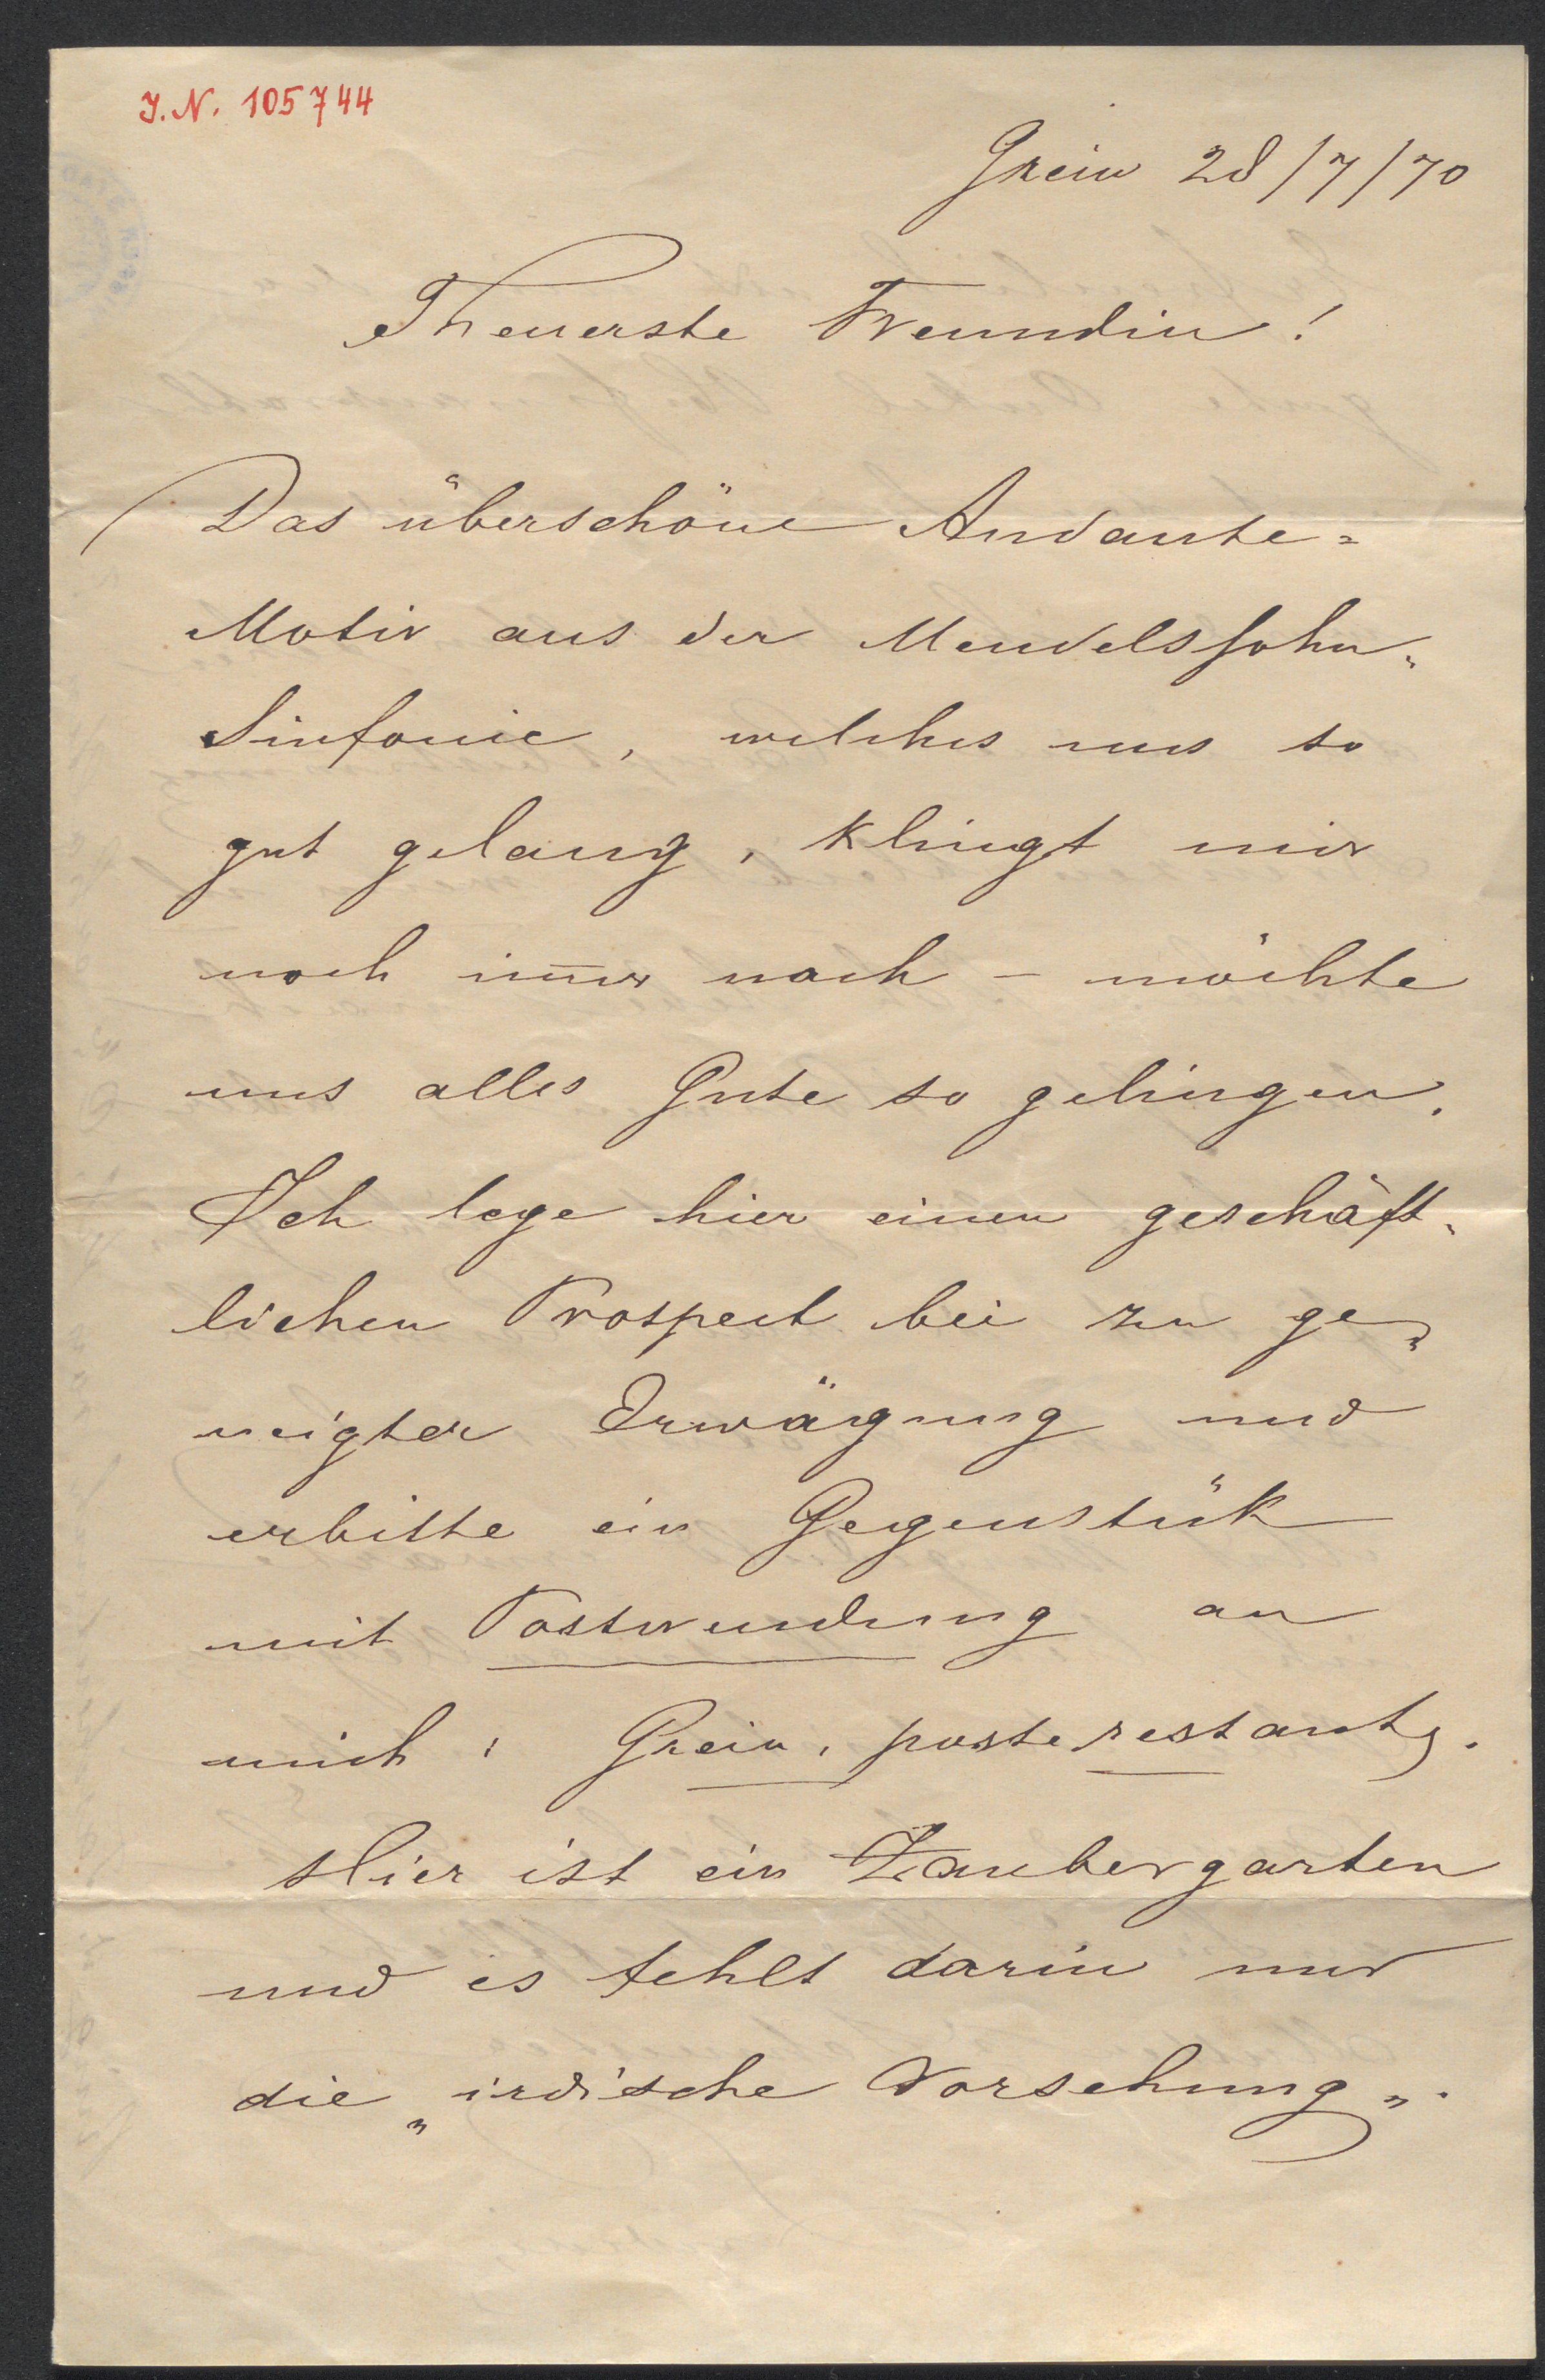 J.N. 105744
Grein 28/7/70
Theuerste Freundin!
Das überschöne Andante=
Motiv aus der Mendelssohn„
Sinfonie, welches uns so
gut gelang, klingt mir
noch im̅er nach – möchte
uns alles Gute so gelingen.
Ich lege hier einen geschäft„
lichen Prospect bei zu ge„
neigter Erwägung und
erbitte ein Gegenstük
mit Postwendung an
mich: Grein, poste restante.
Hier ist ein Zaubergarten
und es fehlt darin nur
die „irdische Vorsehung„.